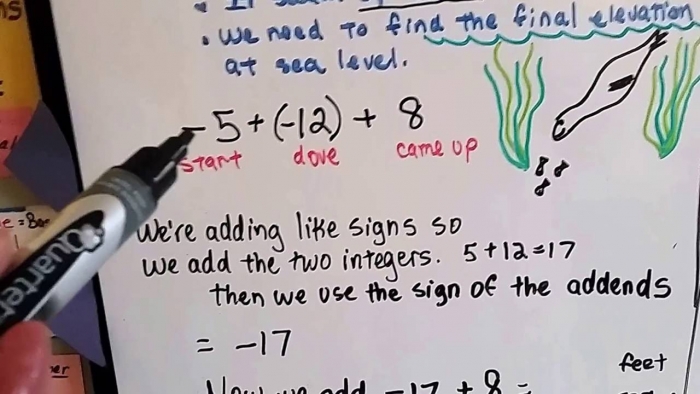 • We need to find the final elevation
at sea level.
-5 + (-12) + 8
start dove came up
We're adding like signs so
we add the two integers. 5 + 12 = 17
then we use the sign of the addends
= -17
feet
Now we add -17 + 8 =
Quartet